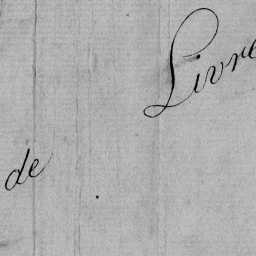 Livre
de